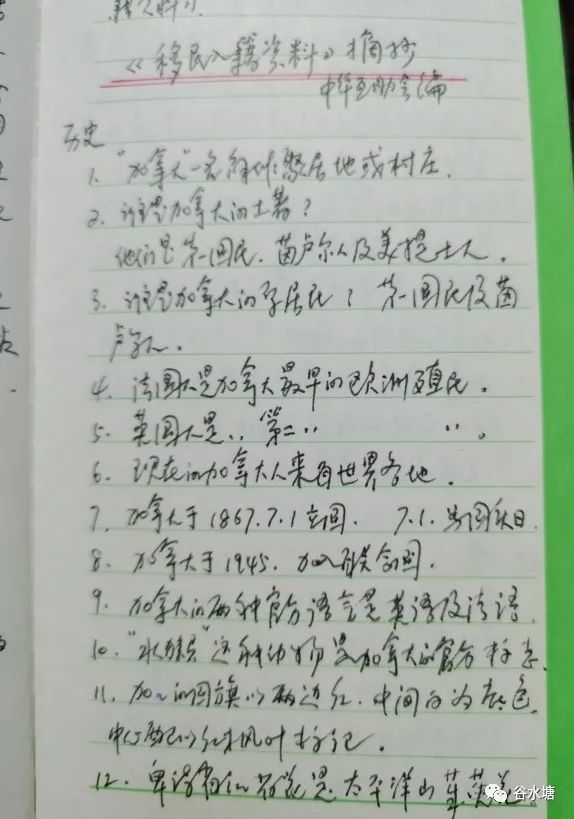 《移民入籍资料》摘抄
中华互助会编
历史
1. "加拿大"一名解作聚居地或村庄.
2. 谁是加拿大的土著?
他们是第一国民. 茵卢尔人及美提士人.
3. 谁是加拿大的原居民? 第一国民及茵
卢尔人.
4. 法国人是加拿大最早的欧洲殖民.
5. 英国人是〃 第二〃 〃.
6. 现在的加拿大人来自世界各地.
7. 加拿大于1867.7.1立国. 7.1.为国庆日.
8. 加拿大于1945. 加入联合国.
9. 加拿大的两种官方语言是英语及法语.
10. "水獭"这种动物是加拿大的官方标志.
11. 加~的国旗以两边红. 中间白为底色.
中心配以红枫叶标记.
12. 卑诗省的省花是太平洋山茱萸花
谷水塘